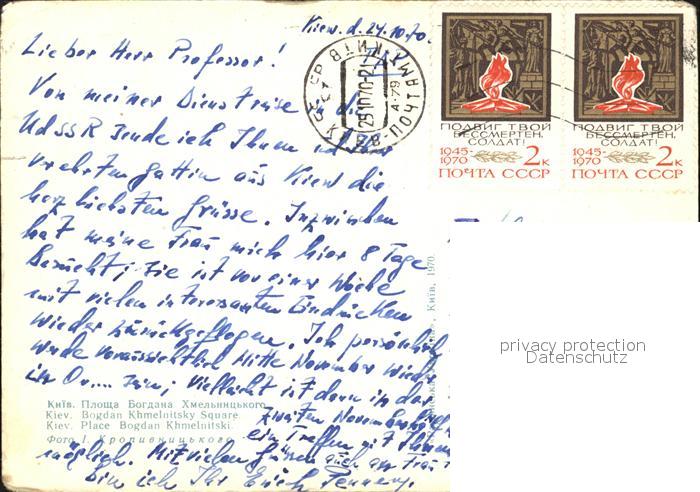 Kiew. d. 24.10.70.
Lieber Herr Professor!
Von meiner Dienstreise in die
UdSSR sende ich Ihnen und Ihrer
verehrten Gattin aus Kiew die
herzlichsten Grüsse. Inzwischen
hat meine Frau mich hier 8 Tage
besucht; sie ist vor einer Woche
mit vielen interessanten Eindrücken
wieder zurückgeflogen. Ich persönlich
werde voraussichtlich Mitte November wieder
in Ov.... sein; vielleicht ist dann in der
zweiten Novemberhälfte
ein Treffen mit Ihnen
möglich. Mit vielen Grüssen auch an Frau
bin ich Ihr Erich
Київ. Площа Богдана Хмельницького
Kiev. Bogdan Khmelnitsky Square.
Kiev. Place Bogdan Khmelnitski.
Фото І. Кропивницького
Київ, 1970.
ПОЧТАМТ
25 10 70
ПОДВИГ ТВОЙ
БЕССМЕРТЕН,
СОЛДАТ!
1945-
1970
2к
ПОЧТА СССР
ПОДВИГ ТВОЙ
БЕССМЕРТЕН,
СОЛДАТ!
1945-
1970
2к
ПОЧТА СССР
privacy protection
Datenschutz